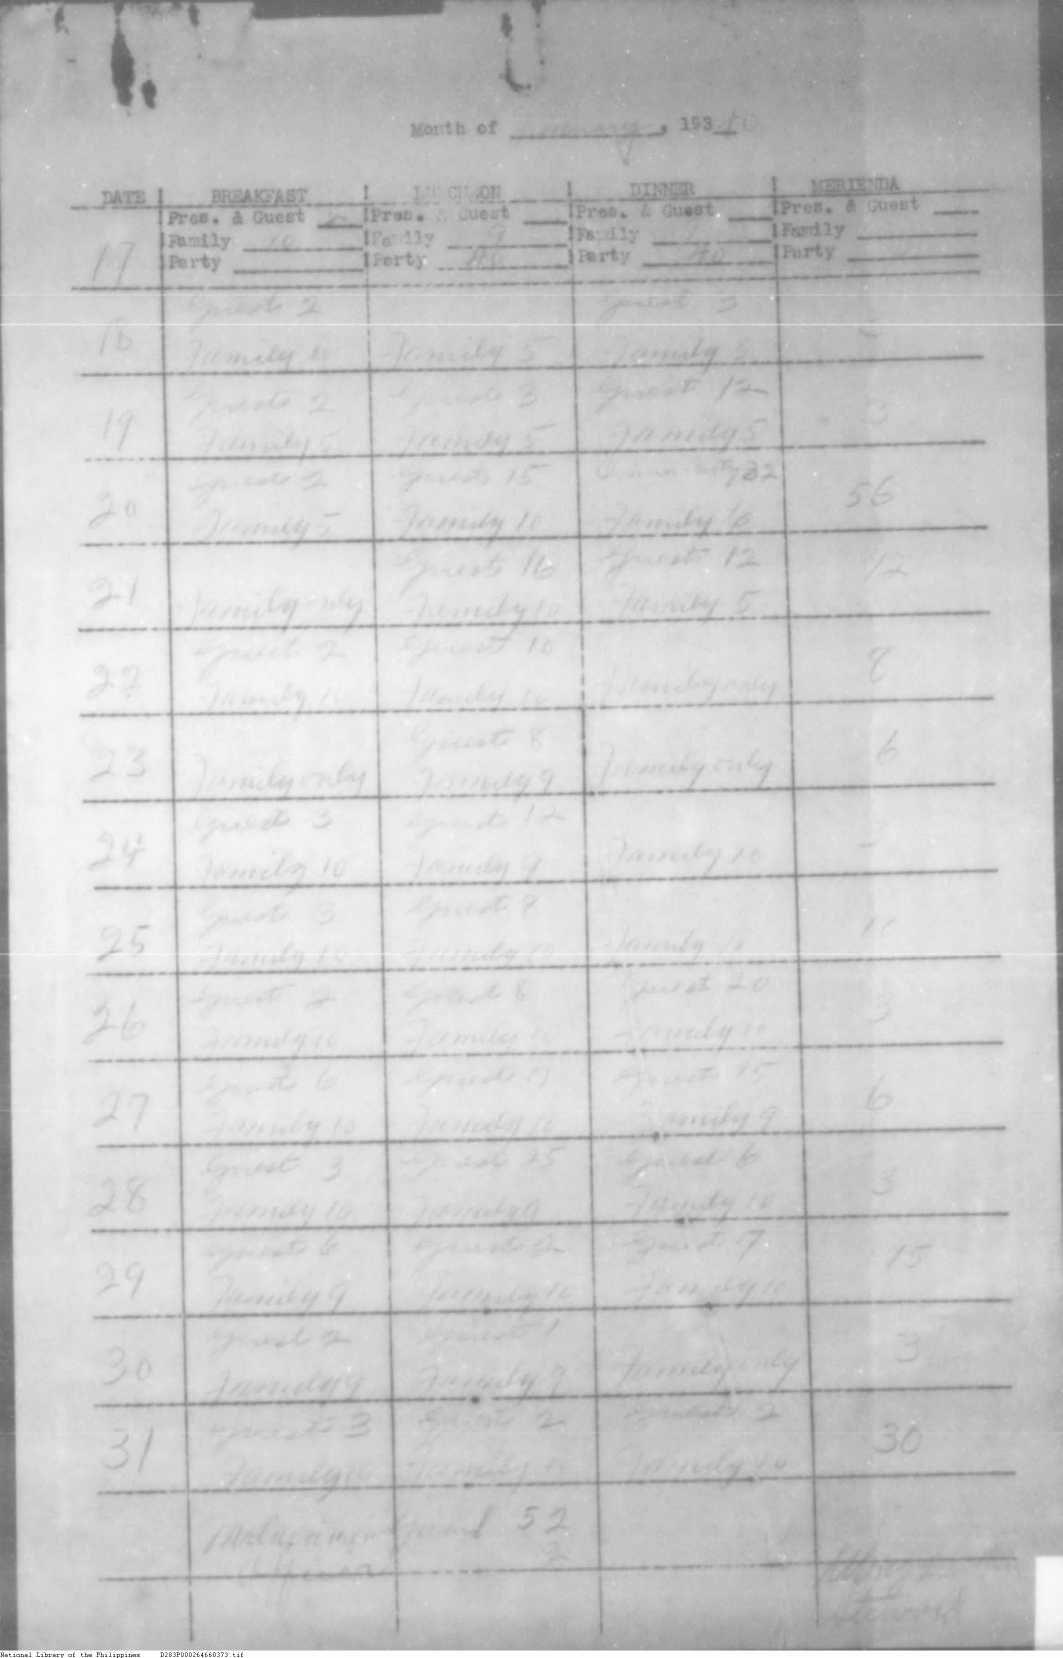 Month of January, 193 40
DATE ! BREAKFAST ! LUNCHEON ! DINNER ! MERIENDA
!Pres. & Guest 2 !Pres. & Guest !Pres. & Guest !Pres. & Guest
!Family 10 !Family 9 !Family !Family
17 !Party !Party 40 !Party 40 !Party
Guests 2 Guest 3
18 Family 10 Family 5 Family 5
Guests 2 Guests 3 Guest 12
19 Family 5 Family 5 Family 5 3
Guests 2 Guests 15 Dinner party 32
20 Family 5 Family 10 Family 10 56
Guests 16 Guest 12
21 Family only Family 10 Family 5 12
Guest 2 Guest 10
22 Family 10 Family 10 Family only 8
Guests 8
23 Family only Family 9 Family only 6
Guest 3 Guests 12
24 Family 10 Family 9 Family 10 -
Guest 3 Guest 8
25 Family 10 Family 10 Family 10
Guest 2 Guest 8 Guest 20
26 Family 10 Family 10 Family 10 3
Guest 6 Guests Guest 15
27 Family 10 Family 10 Family 9 6
Guest 3 Guests 25 Guest 6
28 Family 10 Family 9 Family 10 3
Guests 6 Guests Guest 7
29 Family 9 Family 10 Family 10 15
Guest 2 Guest 1
30 Family 9 Family 9 Family only 3
Guests 3 Guests 2 Guests 2
31 Family 10 Family 10 Family 10 30
Malacañan Guard 52
Officers 2
Steward
National Library of the Philippines D283P000264660373.tif